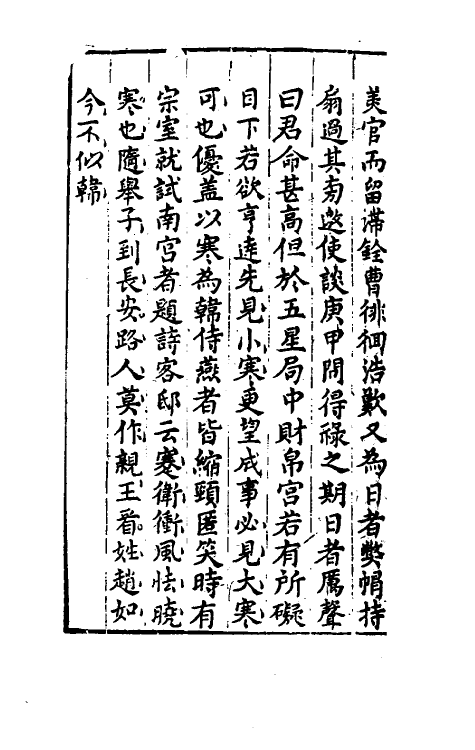 美官而留滯銓曹徘徊浩歎又為日者弊㡌持
扇過其旁遂使談庚甲問得祿之期日者厲聲
曰君命甚高但於五星局中財帛宫若有所礙
目下若欲亨達先見小寒更望成事必見大寒
可也優盖以寒為韓侍燕者皆縮頸匿笑時有
宗室就試南宫者題詩客邸云蹇衛衝風怯曉
寒也隨舉子到長安路人莫作親王看姓趙如
今不似韓